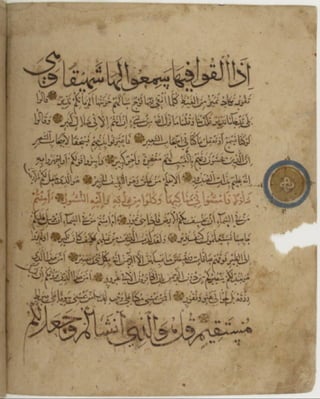 إذا ألقوا فيها سمعوا لها شهيقا وهي
تفور تكاد تميز من الغيظ كلما ألقي فيها فوج سألهم خزنتها ألم يأتكم نذير قالوا
بلى قد جاءنا نذير فكذبنا وقلنا ما نزل الله من شيء إن أنتم إلا في ضلال كبير وقالوا
لو كنا نسمع أو نعقل ما كنا في أصحاب السعير فاعترفوا بذنبهم فسحقا لأصحاب السعير
إن الذين يخشون ربهم بالغيب لهم مغفرة وأجر كبير وأسروا قولكم أو اجهروا به
إنه عليم بذات الصدور ألا يعلم من خلق وهو اللطيف الخبير هو الذي جعل لكم الأرض
ذلولا فامشوا في مناكبها وكلوا من رزقه وإليه النشور أأمنتم
من في السماء أن يخسف بكم الأرض فإذا هي تمور أم أمنتم من في السماء أن يرسل عليكم
حاصبا فستعلمون كيف نذير ولقد كذب الذين من قبلهم فكيف كان نكير أولم يروا
إلى الطير فوقهم صافات ويقبضن ما يمسكهن إلا الرحمن إنه بكل شيء بصير أمن هذا الذي
هو جند لكم ينصركم من دون الرحمن إن الكافرون إلا في غرور أمن هذا الذي يرزقكم إن أمسك
رزقه بل لجوا في عتو ونفور أفمن يمشي مكبا على وجهه أهدى أمن يمشي سويا على صراط
مستقيم قل هو الذي أنشأكم وجعل لكم